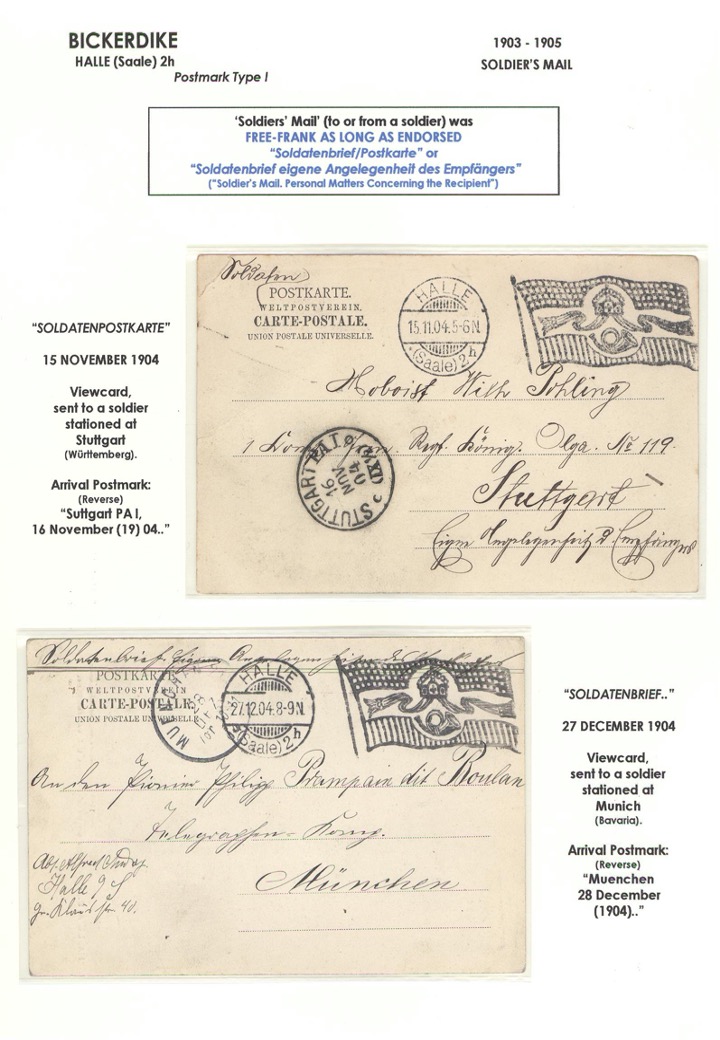 BICKERDIKE
HALLE (Saale) 2h
Postmark Type I
1903 - 1905
SOLDIER'S MAIL
'Soldiers' Mail' (to or from a soldier) was
FREE-FRANK AS LONG AS ENDORSED
"Soldatenbrief/Postkarte" or
"Soldatenbrief eigene Angelegenheit des Empfängers"
("Soldier's Mail. Personal Matters Concerning the Recipient")
"SOLDATENPOSTKARTE"
15 NOVEMBER 1904
Viewcard,
sent to a soldier
stationed at
Stuttgart
(Württemberg).
Arrival Postmark:
(Reverse)
"Suttgart PA I,
16 November (19) 04.."
POSTKARTE.
WELTPOSTVEREIN.
CARTE-POSTALE.
UNION POSTALE UNIVERSELLE.
HALLE
15.11.04.5-6N.
(Saale) 2h
Hoboist Wilh Pohling
1 Regt. König. Olga. No 119.
STUTTGART P.A.I.
16
NOV
04
Stuttgart
Eigene Angelegenheit d. Empfängers
Soldatenbrief Eigene
POSTKARTE
WELTPOSTVEREIN
CARTE-POSTALE.
UNION POSTALE UNIVERSELLE
HALLE
27.12.04.8-9N.
(Saale) 2h
An den Pionier Philipp dit Boulan
Telegraphen-Komp.
München.
Abs. Alfred
Halle
"SOLDATENBRIEF.."
27 DECEMBER 1904
Viewcard,
sent to a soldier
stationed at
Munich
(Bavaria).
Arrival Postmark:
(Reverse)
"Muenchen
28 December
(1904).."